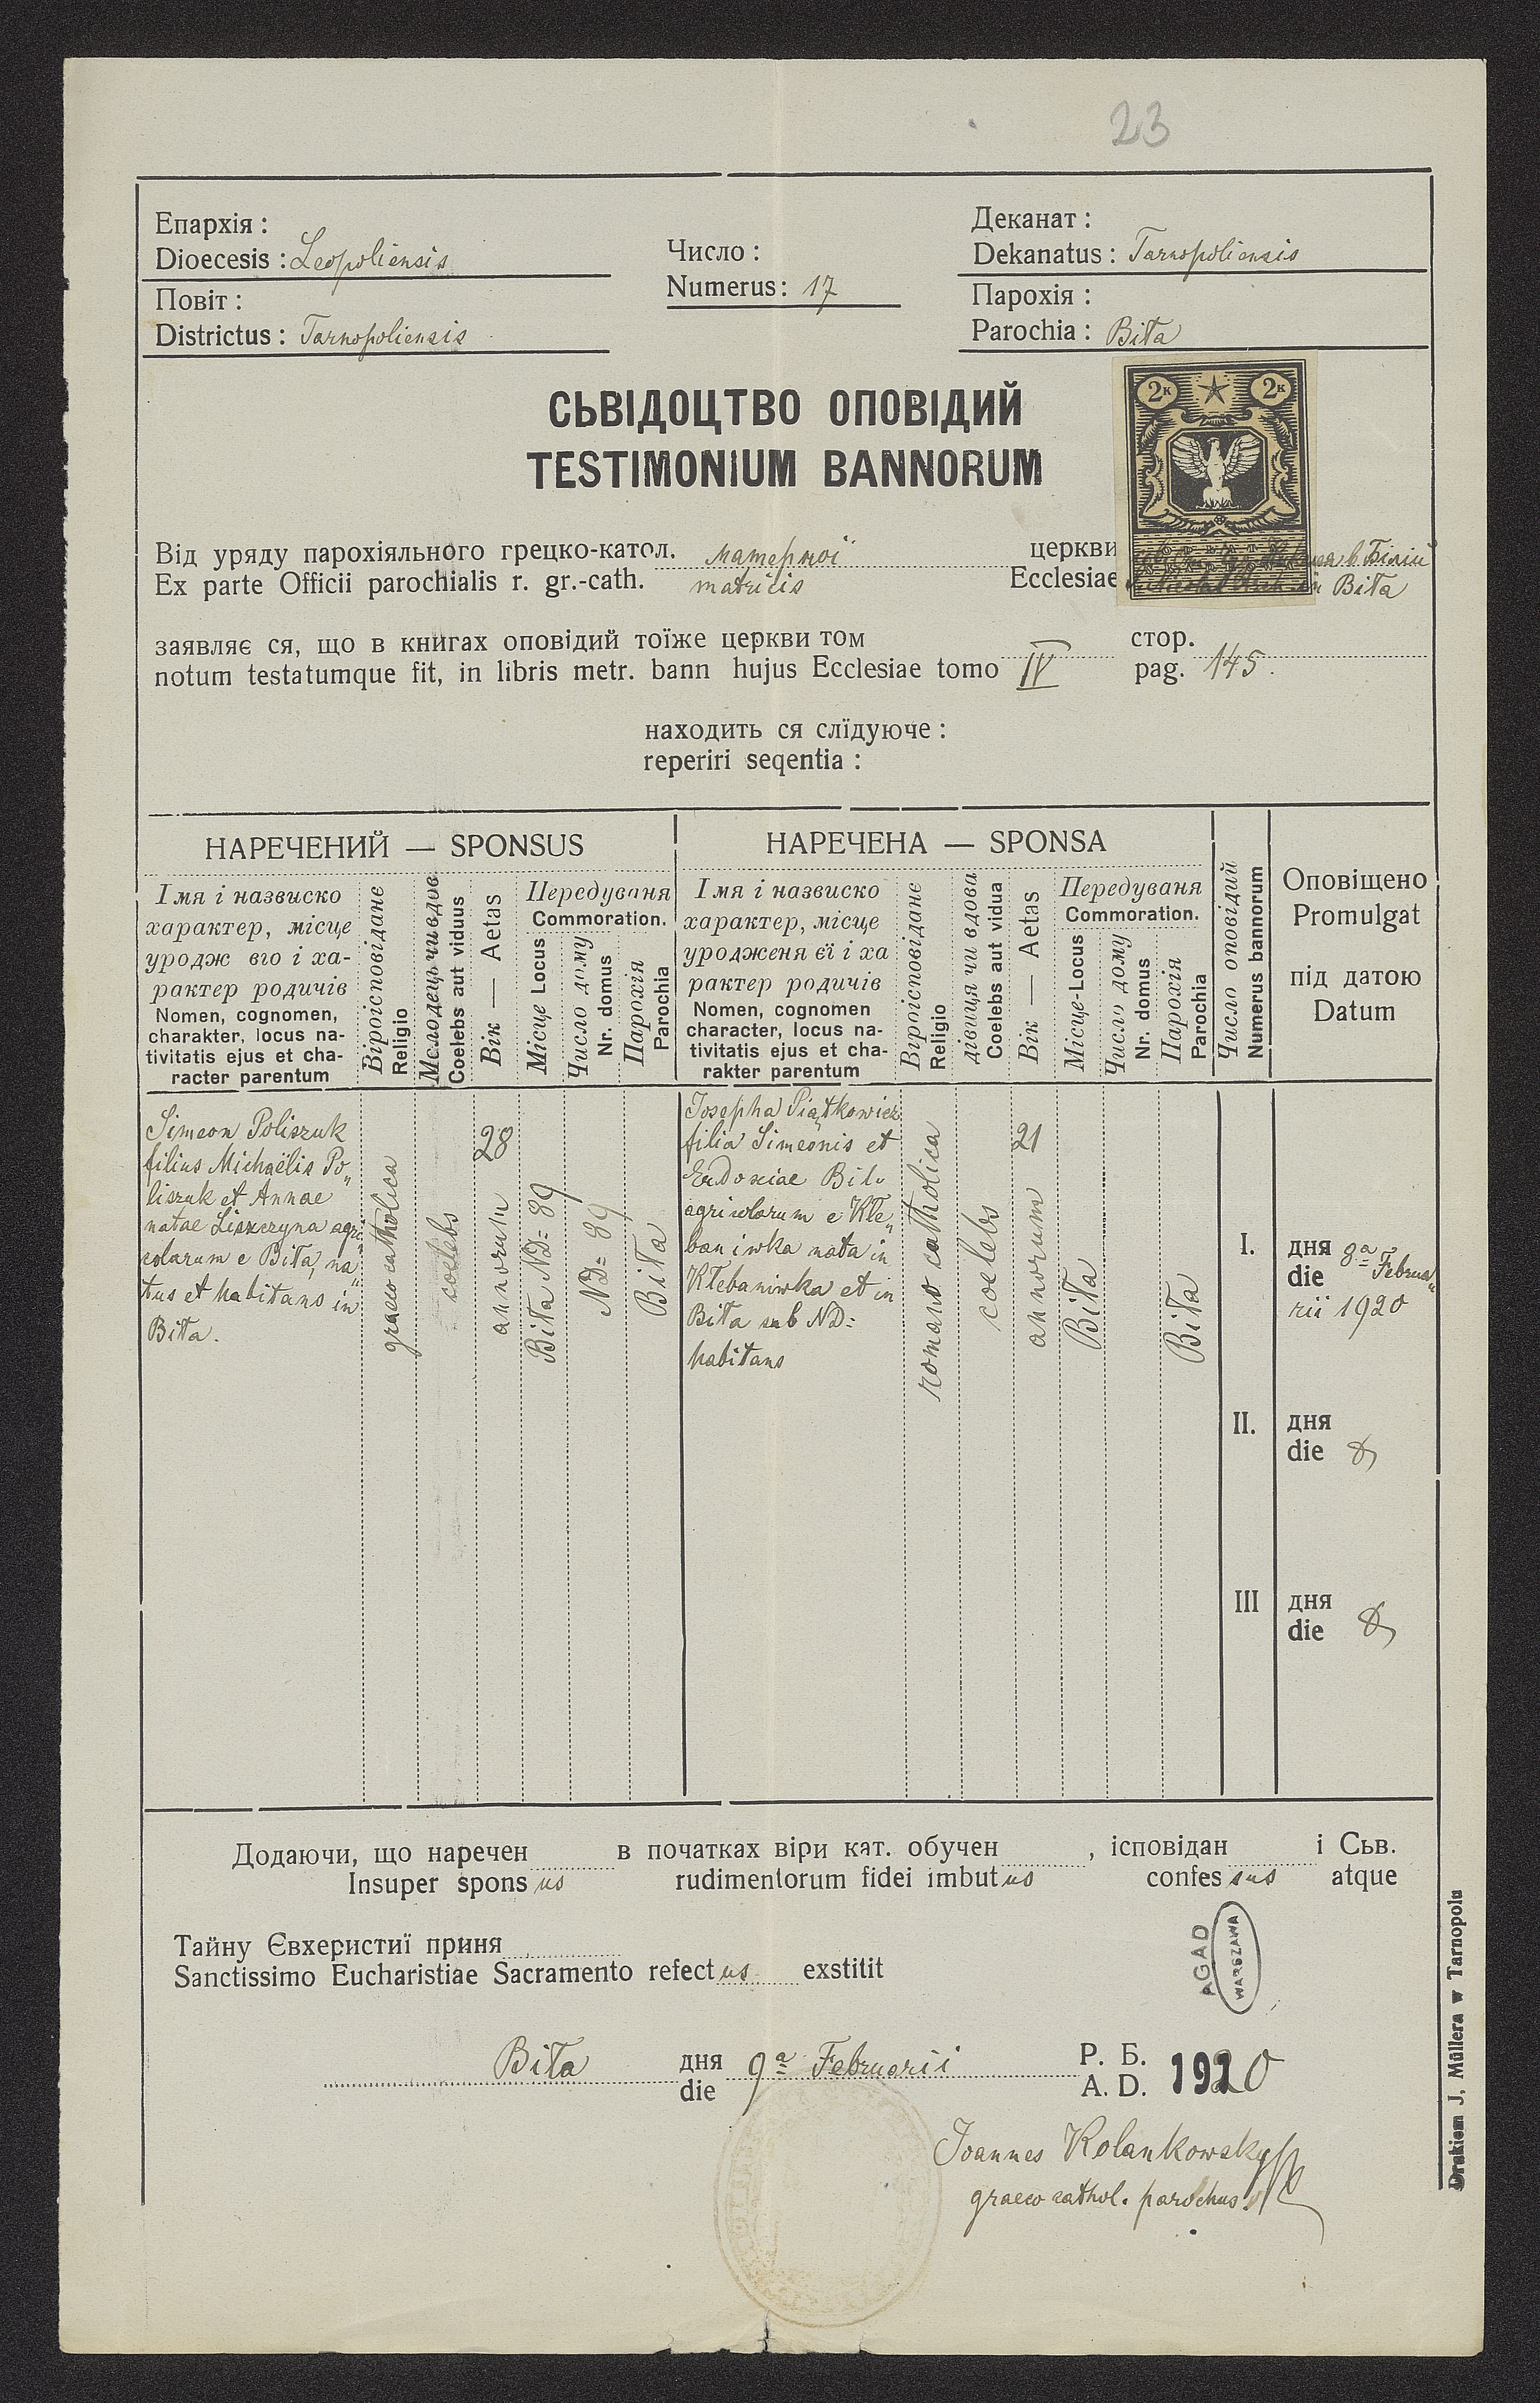 23
Епархія :
Dioecesis : Leopoliensis
Повіт :
Districtus : Tarnopoliensis
Число :
Numerus : 17
Деканат :
Dekanatus : Tarnopoliensis
Парохія :
Parochia : Biła
2к 2к
СЬВІДОЦТВО ОПОВІДИЙ
TESTIMONIUM BANNORUM
Від уряду парохіяльного грецко-катол. матерної церкви в Білій
Ex parte Officii parochialis r. gr.-cath. matricis Ecclesiae in Biła
заявляє ся, що в книгах оповідий тоїже церкви том стор.
notum testatumque fit, in libris metr. bann hujus Ecclesiae tomo IV pag. 145.
находить ся слїдуюче :
reperiri seqentia :
НАРЕЧЕНИЙ — SPONSUS
Імя і назвиско
характер, місце
уродж его і ха-
рактер родичів
Nomen, cognomen,
charakter, locus na-
tivitatis ejus et cha-
racter parentum
Віроісповідане
Religio
Молодець чи вдов
Coelebs aut viduus
Вік — Aetas
Передуваня
Commoration.
Місце Locus
Число дому
Nr. domus
Парохія
Parochia
НАРЕЧЕНА — SPONSA
Імя і назвиско
характер, місце
уродженя єї і ха
рактер родичів
Nomen, cognomen
character, locus na-
tivitatis ejus et cha-
rakter parentum
Віроісповідане
Religio
дівиця чи вдова
Coelebs aut vidua
Вік — Aetas
Передуваня
Commoration.
Місце-Locus
Число дому
Nr. domus
Парохія
Parochia
Число оповідий
Numerus bannorum
Оповіщено
Promulgat
під датою
Datum
Simeon Poliszuk
filius Michaëlis Po„
liszuk et Annae
natae Liszczyna agri„
colarum e Biła, na„
tus et habitans in
Biła.
graeco catholica
coelebs
28
annorum
Biła ND= 89
ND= 89
Biła
Josepha Piątkowicz
filia Simeonis et
Eudoxiae
agricolarum e Kłe„
baniwka nata in
Kłebaniwka et in
Biła sub ND=
habitans
romano catholica
coelebs
21
annorum
Biła
Biła
I. дня
die 8ª Februa„
rii 1920
II. дня
die
III дня
die
Додаючи, що наречен в початках віри кат. обучен , ісповідан і Сьв.
Insuper spons us rudimentorum fidei imbut us confes sus atque
Тайну Євхеристиї приня
Sanctissimo Eucharistiae Sacramento refect us exstitit
AGAD
WARSZAWA
Biła дня
die 9ª Februarii Р. Б.
A. D. 1920
Joannes Kolankowsky
graeco cathol. parochus
Drukiem J. Müllera w Tarnopolu